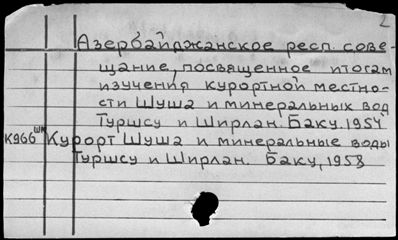 2
Азербайджанское респ. сове-
щание, посвященное итогам
изучения курортной местно-
сти Шуша и минеральных вод
Туршсу и Ширлан. Баку, 1954
К966 Курорт Шуша и минеральные воды
Туршсу и Ширлан. Баку, 1958